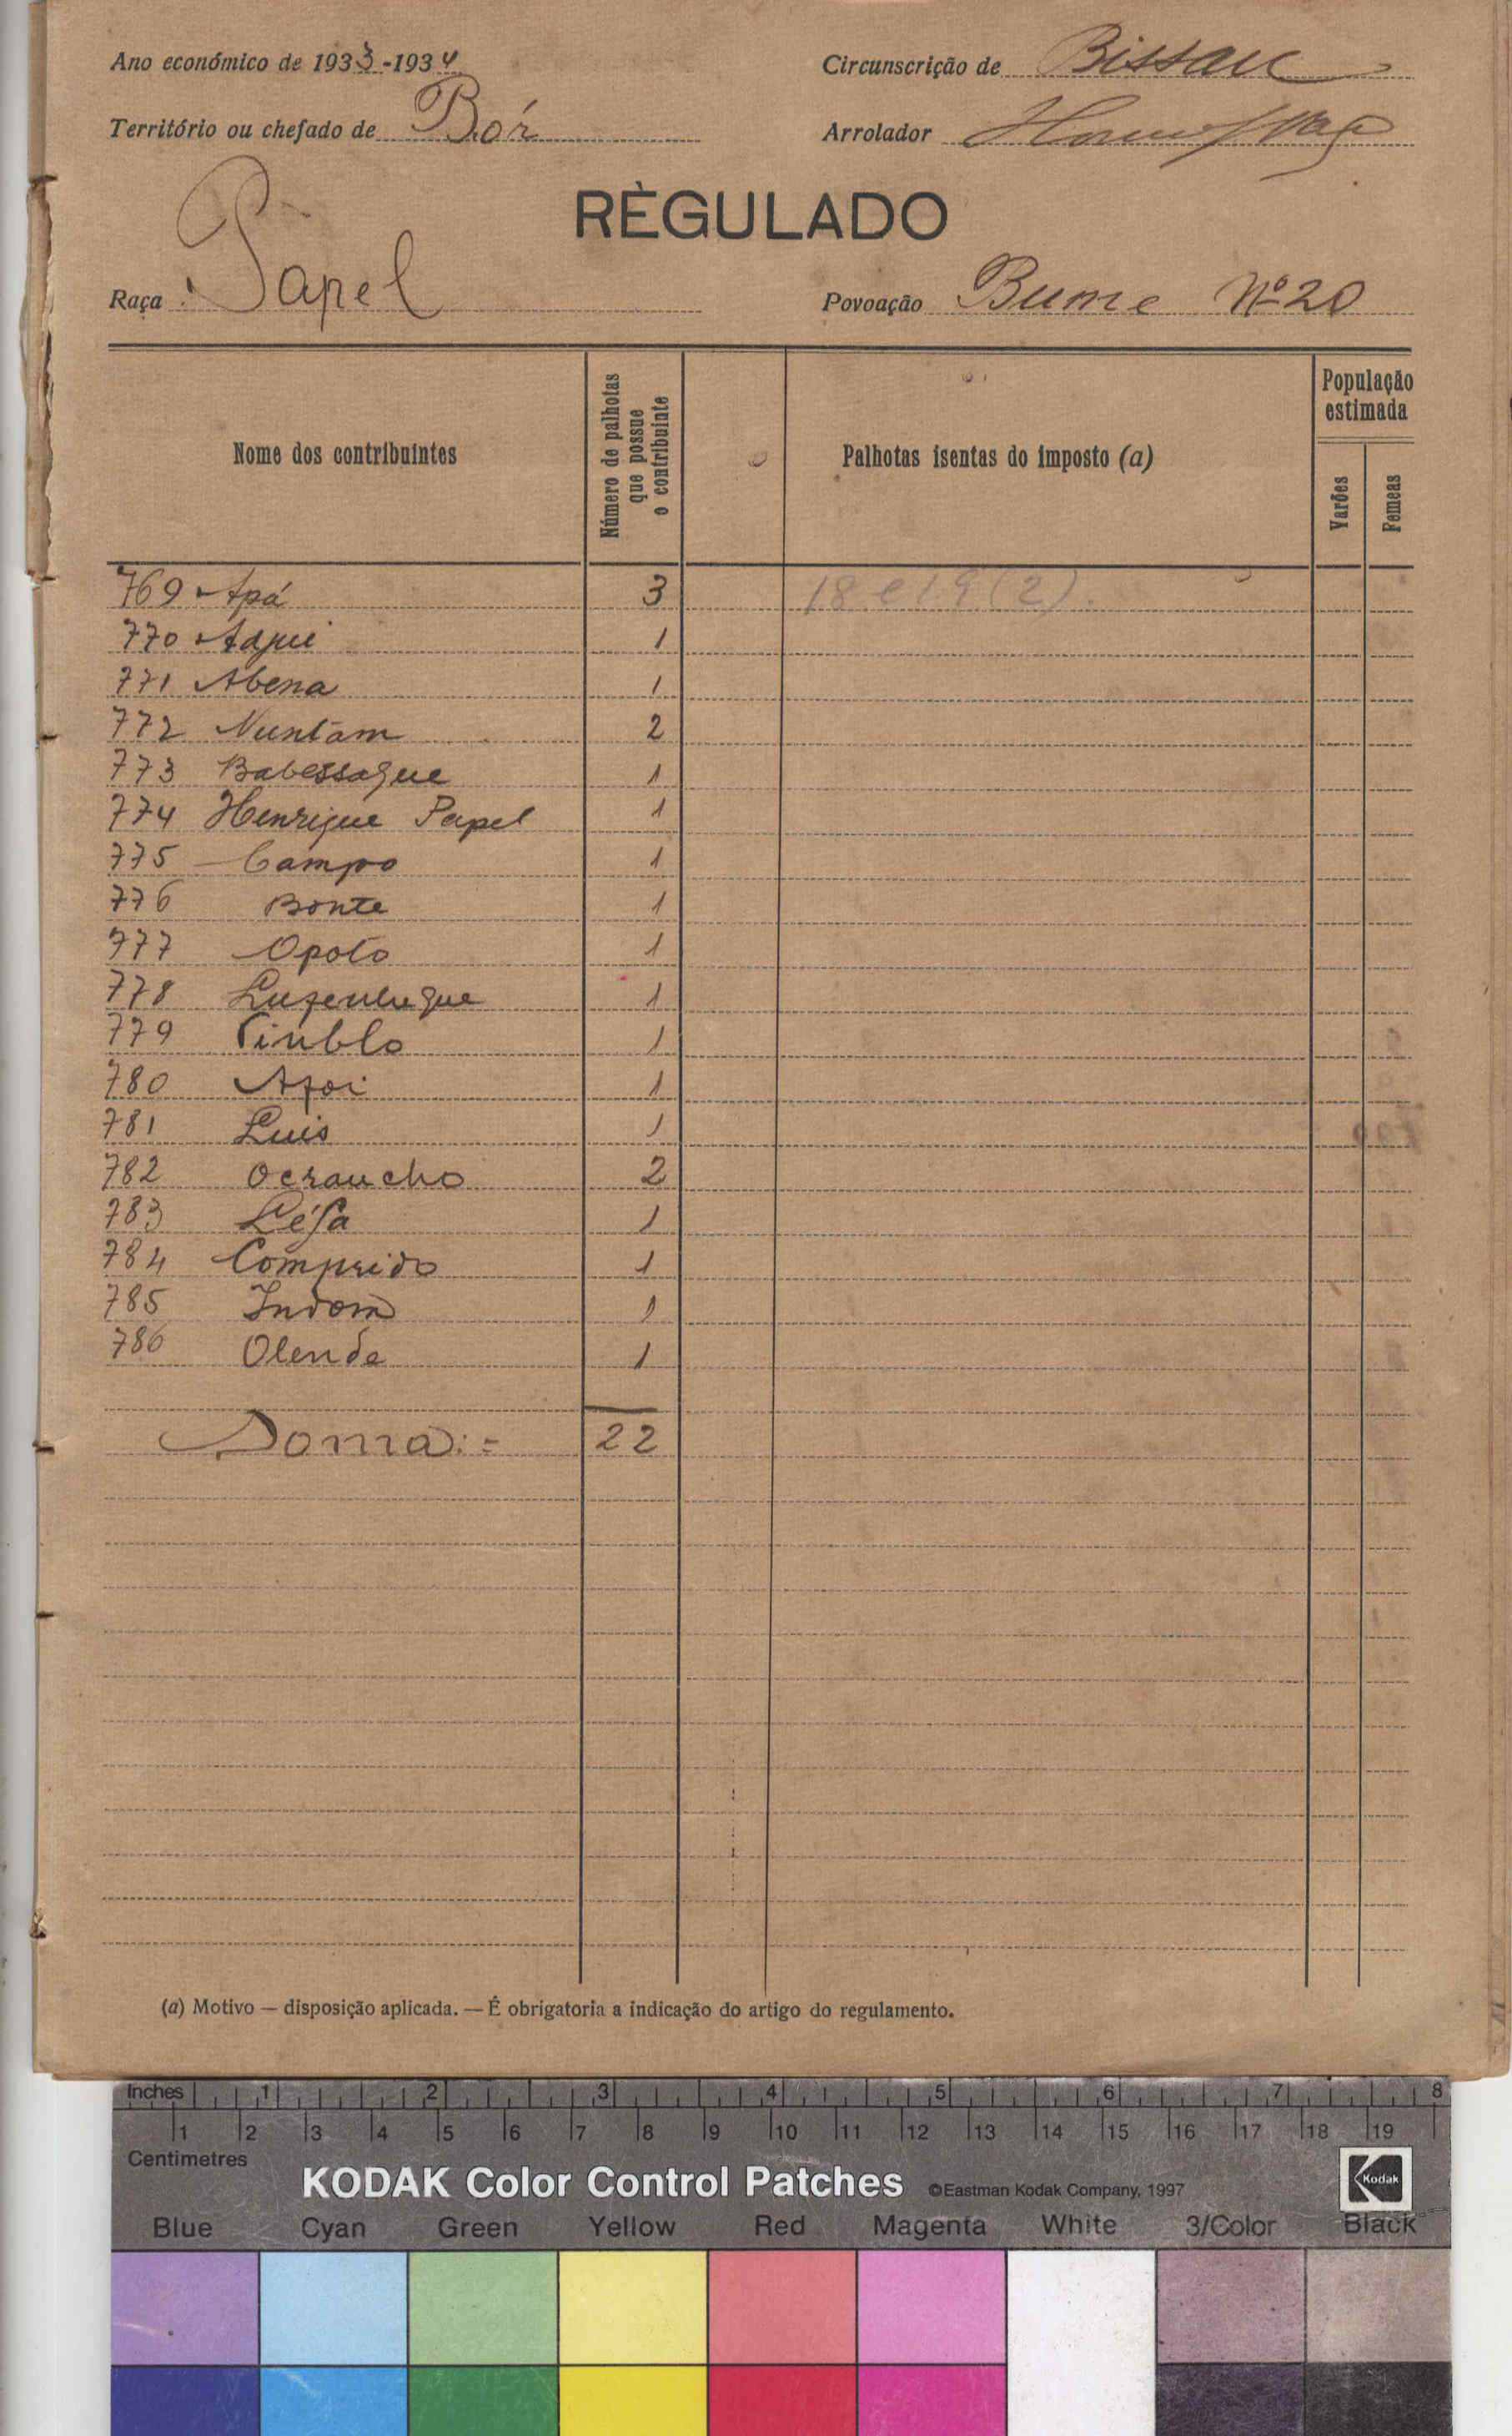 Ano económico de 1933-1934 Circunscrição de Bissau
Território ou chefado de Bór Arrolador
RÈGULADO
Raça Papel Povoação Bume Nº 20
Nome dos contribuintes
Número de palhotas que possue o contribuinte
Palhotas isentas do imposto (a)
População estimada
Varões
Femeas
769 Apá 3 18 e 19 (2).
770 Adjui 1
771 Abena 1
772 Nuntam 2
773 Babessaque 1
774 Henrique Papel 1
775 Campo 1
776 Bonte 1
777 Opoto 1
778 1
779 1
780 1
781 Luis 1
782 Ocraucho 2
783 1
784 Comprido 1
785 Indom 1
786 Olende 1
Soma:= 22
(a) Motivo — disposição aplicada. — É obrigatoria a indicação do artigo do regulamento.
Inches 1 2 3 4 5 6 7 8
1 2 3 4 5 6 7 8 9 10 11 12 13 14 15 16 17 18 19
Centimetres
KODAK Color Control Patches ©Eastman Kodak Company, 1997 Kodak
Blue Cyan Green Yellow Red Magenta White 3/Color Black